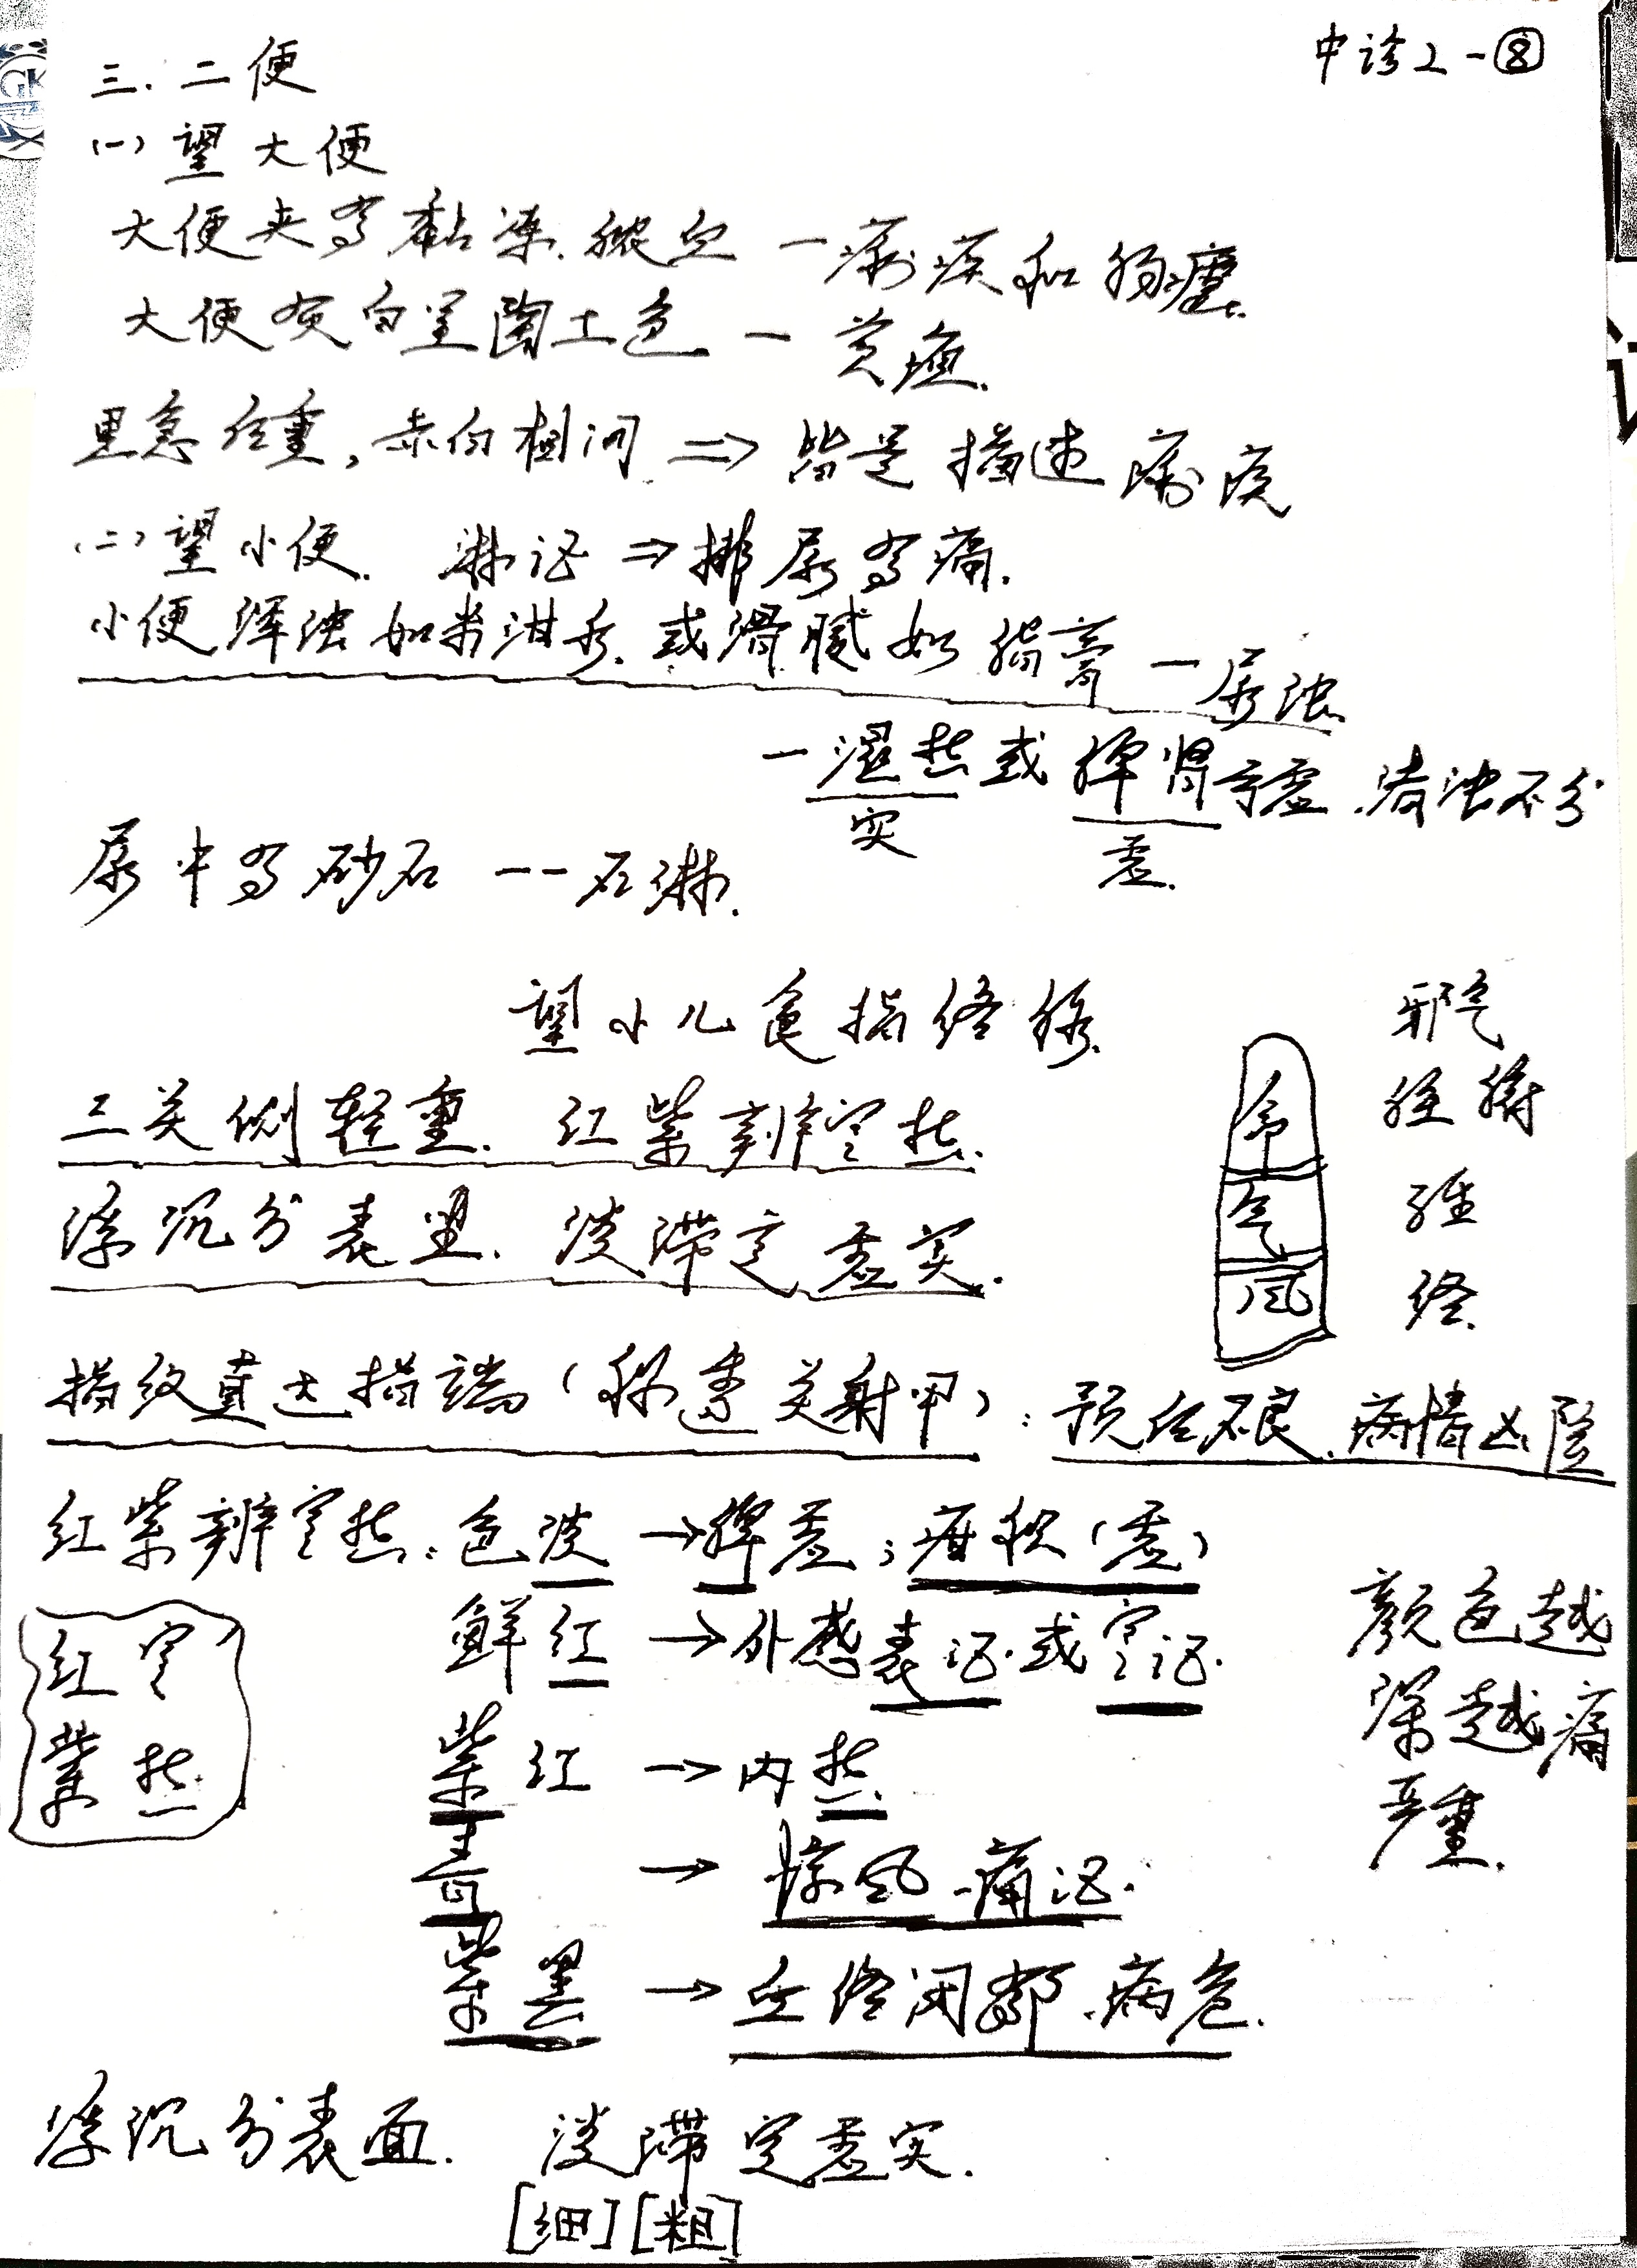 中诊2-⑧
三.二便
(一)望大便
大便夹有黏冻.脓血—痢疾和肠痈.
大便灰白呈陶土色—黄疸.
里急后重,赤白相间⇒皆是描述痢疾
(二)望小便. 淋证⇒排尿有痛.
小便浑浊如米泔水.或滑腻如脂膏—尿浊.
—湿热或脾肾亏虚.清浊不分
实 虚.
尿中有砂石--石淋.
望小儿食指络脉.
邪气
命 经脉
气 经
风 络.
三关测轻重.红紫辨寒热.
浮沉分表里.淡滞定虚实.
指纹直达指端(称透关射甲):预后不良.病情凶险
红紫辨寒热:色淡→脾虚;疳积(虚)
鲜红→外感表证.或寒证.
紫红→内热.
青→惊风.痛证.
紫黑→血络闭郁.病危.
红寒
紫热.
颜色越
深越痛
严重.
浮沉分表面. 淡滞定虚实.
[细][粗]